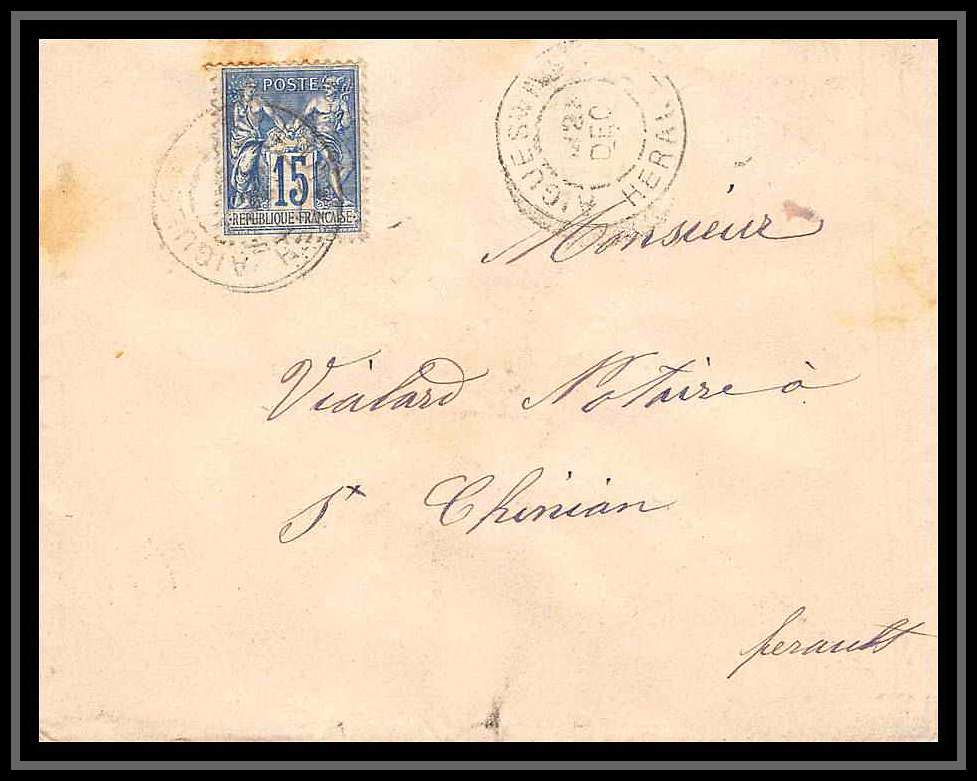 POSTES
15
REPUBLIQUE FRANCAISE
AIGUES
DEC
HERAU
Monsieur
Vialard Notaire à
St Chinian
herault